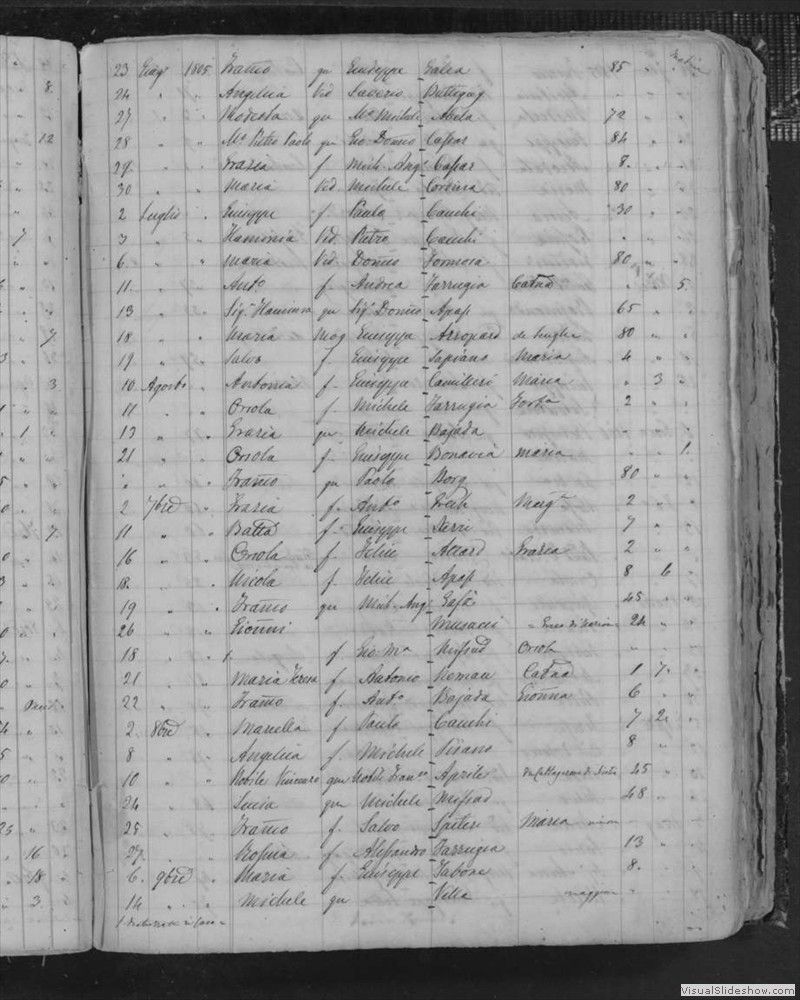 23 Giug. 1805 Franco qu Giuseppe Galea 85 " "
24 " " Angelica Vid Saverio Buttigieg " " "
27 " " Modesta qu Mo Michele Abela 72 " "
28 " " Mo Pietro Paolo qu Gio Domco Caspar 84
29 " " Grazia f Mich. Ang. Caspar 8.
30 " " Maria Vid Michele 80
2 Luglio " Giuseppe f Paulo Cauchi 30
3 " " Flaminia Vid. Pietro Cauchi " "
6. " " Maria Vid. Domco Formosa 80
11. " " Anto f. Andrea Farrugia Catna " " 5
13 " Sig. qu Sig. Domco Apap 65
18 " " Maria Mog Giuseppe 80 " "
19 " " Salvo f. Giuseppe Sapiano Maria 4 " "
10 Agosto " Antonia f. Giuseppe Camilleri Maria " 3 "
11 " " Orsola f. Michele Farrugia 2
13 " " Grazia qu Michele Bajada " " "
21 " " Orsola f. Giuseppe Bonavia Maria " " 1.
" " " Franco qu Paolo Borg 80
2 7bre " Grazia f. Anto Marga 2
11 " " Batta f. Giuseppe 7
16 " " Orsola f. Felice Attard Grazia 2
18. " " Nicola f Felice Apap 8 6
19 " " Franco qu Mich. Ang. Safà 45
26 " " Gionni Musacci 24
18 " " f Gio Ma Mifsud Orsola
21 " " Maria Teresa f Antonio Roman Catna 1 7.
22 " " Franco f. Anto Bajada Gionna 6 "
2. 8bre " Mariella f Paulo Cauchi 7 2.
8 " " Angelica f. Michele Pisano 8
10 " " Nobile Vincenzo qm Nobile Franco Aprile 25
24 " " Lucia qu Michele Mifsud 48
25 " " Franco f. Salvo Spiteri Maria
27. " " Rosina f. Alessandro Farrugia 13
6. 9bre " Maria f. Giuseppe Tabone 8.
14 " " Michele qu Vella
VisualSlideshow.com